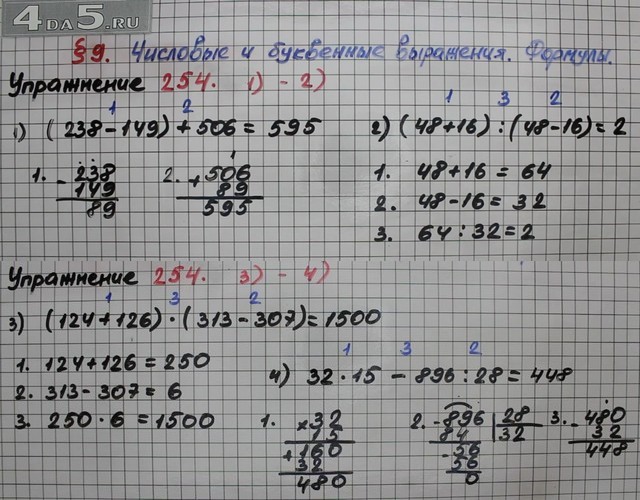 4DA5.RU
§9. Числовые и буквенные выражения. Формулы.
Упражнение 254. 1) - 2)
1 2
1) (238-149)+506=595
1. -238
149
89
2. 1
+506
89
595
1 3 2
2) (48+16):(48-16)=2
1. 48+16=64
2. 48-16=32
3. 64:32=2
Упражнение 254. 3) - 4)
1 3 2
3) (124+126)·(313-307)=1500
1. 124+126=250
2. 313-307=6
3. 250·6=1500
1 3 2
4) 32·15-896:28=448
1. ×32
15
+160
32
480
2. -896 | 28
84 32
-56
56
0
3. -480
32
448